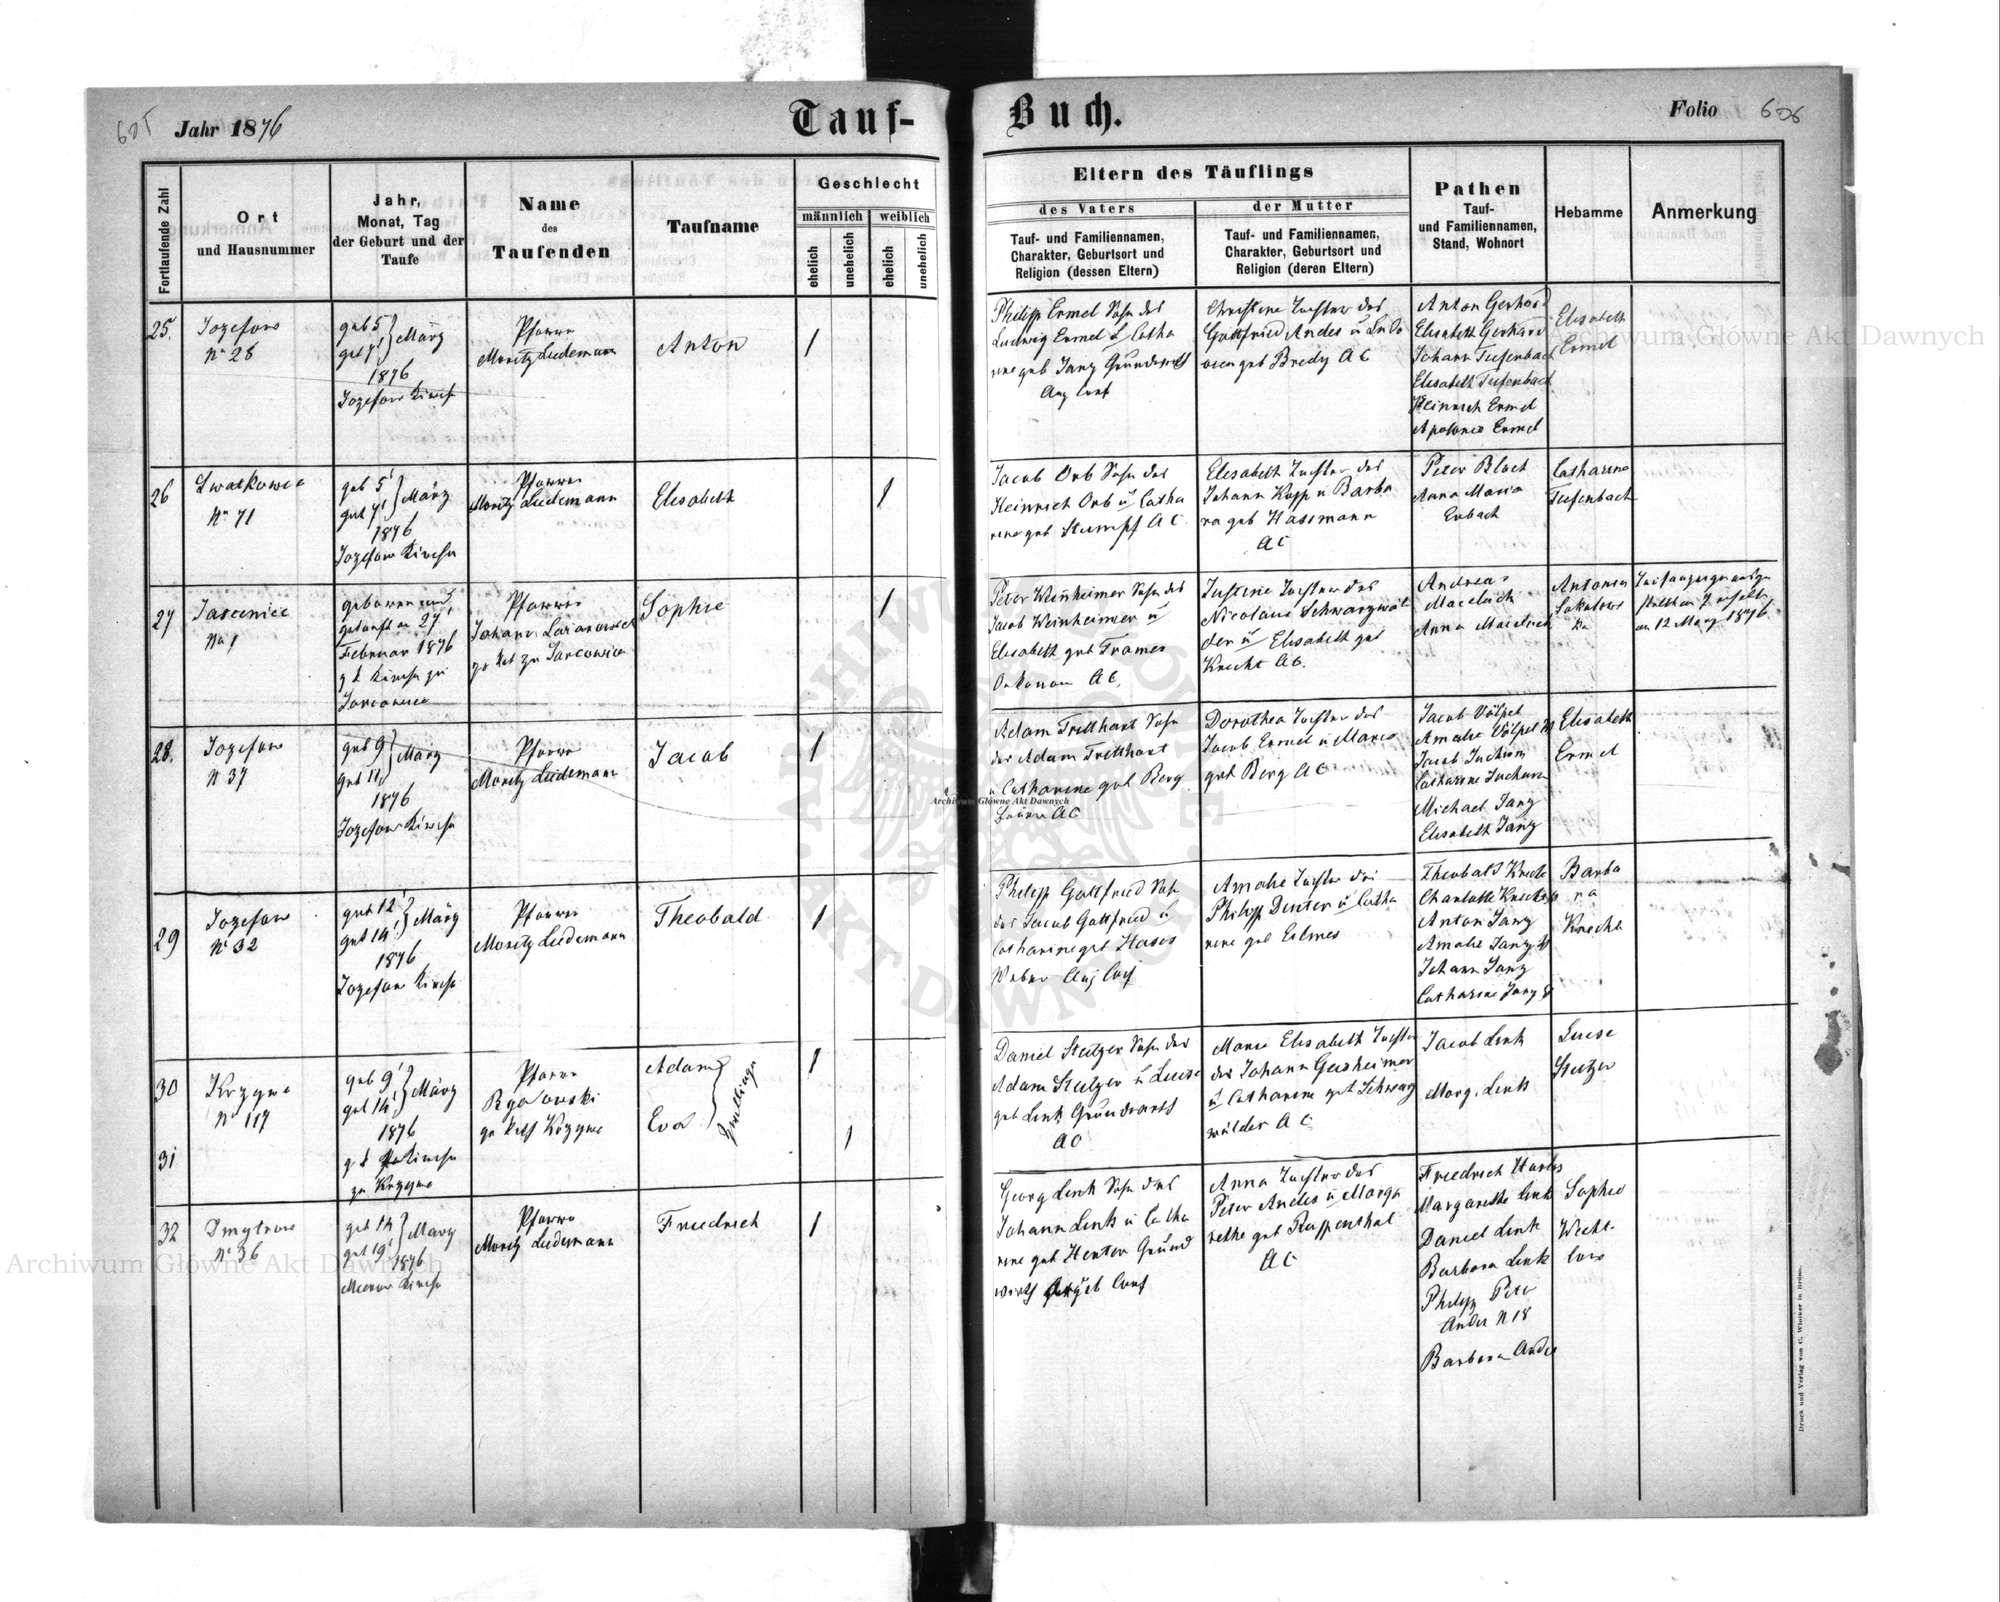 605
Jahr 1876
Tauf-
Buch.
Folio 606
Fortlaufende Zahl
Ort
und Hausnummer
Jahr,
Monat, Tag
der Geburt und der
Taufe
Name
des
Taufenden
Taufname
Geschlecht
männlich
weiblich
ehelich
unehelich
ehelich
unehelich
Eltern des Täuflings
des Vaters
Tauf- und Familiennamen,
Charakter, Geburtsort und
Religion (dessen Eltern)
der Mutter
Tauf- und Familiennamen,
Charakter, Geburtsort und
Religion (deren Eltern)
Pathen
Tauf-
und Familiennamen,
Stand, Wohnort
Hebamme
Anmerkung
25.
Jozefow
No 28
geb 5
get 7 März
1876
Jozefow Kirche
Pfarrer
Moritz Ludemann
Anton
Philipp Ermel Sohn des
Ludwig Ermel u Catha
rine geb Janz Grundwirth
Aug Conf
Christine Tochter des
Gottfried Andes u Ludo
geb Bredy AC
Anton Gerhard
Elisabeth Gerhard
Johann Tiefenbach
Elisabeth Tiefenbach
Heinrich Ermel
Ermel
Elisabeth
Ermel
26
No 71
geb 5
get 7 März
1876
Jozefow Kirche
Pfarrer
Moritz Ludemann
Elisabeth
Jacob Orb Sohn des
Heinrich Orb u Catha
rine geb Stumpf AC
Elisabeth Tochter des
Johann Kopp u Barba
ra geb Hassmann
AC
Peter Bloch
Anna Maria
Erbach
Catharine
Tiefenbach
27
No 1
geboren und
getauft am 27
Februar 1876
Kirche zu
Pfarrer
Johann
Sophie
Peter Weinheimer Sohn des
Jacob Weinheimer u
Elisabeth geb
AC
Justine Tochter des
Nicolaus Schwarzwäl
der u Elisabeth geb
Knecht AC.
Andreas
Anna
am 12 März 1876
28.
Jozefow
N 37
geb 9
get 11 März
1876
Jozefow Kirche
Pfarrer
Moritz Ludemann
Jacob
Adam Trellhart Sohn
des Adam Trellhart
u Catharine geb Berg
AC
Dorothea Tochter des
Jacob Ermel u Marie
geb Berg AC
Jacob Völpel
Amalie Völpel
Jacob
Catharine
Michael Janz
Elisabeth Janz
Elisabeth
Ermel
29
Jozefow
No 32
geb 12
get 14 März
1876
Jozefow Kirche
Pfarrer
Moritz Ludemann
Theobald
Philipp Gottfried Sohn
des Jacob Gottfried u
Catharine geb
Weber Aug Conf
Amalie Tochter des
Philipp u Catha
rine geb
Theobald Knecht
Charlotte Knecht
Anton Janz
Amalie Janz
Johann Janz
Catharine Janz
Barba
ra
Knecht
30
31
No 117
geb 9
get 14 März
1876
Kirche
zu
Pfarrer
Adam
Eva
Zwillinge
Daniel Stelzer Sohn des
Adam Stelzer u Luise
geb Link Grundwirth
AC
Marie Elisabeth Tochter
des Johann
u Catharine geb Schwarz
wälder AC
Jacob Link
Marg. Link
Luise
Stelzer
32
Dmytrow
No 36
geb 14
get 19 März
1876
Kirche
Pfarrer
Moritz Ludemann
Friedrich
Georg Link Sohn des
Johann Link u Catha
rine geb Grund
wirth Conf
Anna Tochter des
Peter Andes u Marga
rethe geb Ruppenthal
AC
Friedrich
Margarethe Link
Daniel Link
Barbara Link
Philipp Peter
Andes N 18
Barbara Andes
Sophie
Druck und Verlag von C. Winiker in Brünn.
Archiwum Główne Akt Dawnych
Archiwum Główne Akt Dawnych
Archiwum Główne Akt Dawnych